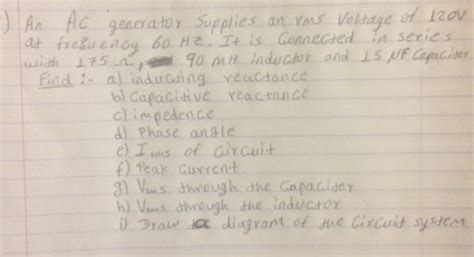 ) An AC generator Supplies an rms Voltage of 120V
at frequency 60 HZ. It is Connected in series
with 175 Ω, 90 mH inductor and 15 µF Capacitor
Find :- a) inducting reactance
b) Capacitive reactance
c) impedence
d) Phase angle
e) I rms of Circuit
f) Peak Current
g) Vrms through the Capacitor
h) Vrms through the inductor
i) Draw a diagram of the Circuit system